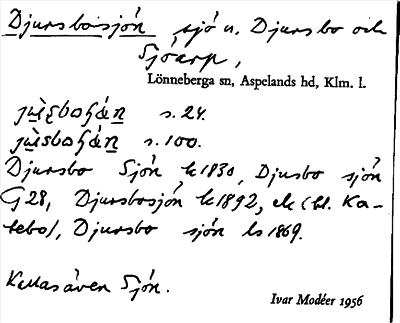 Djursbosjön sjö n. Djursbo och
Sjöarp,
Lönneberga sn, Aspelands hd, Klm. l.
s. 24.
s. 100.
Djursbo Sjön k1830, Djusbo sjön
G28, Djursbosjön k1892, ek (bl. Ka-
tebo), Djursbo sjön ls 1869.
Kallas även Sjön.
Ivar Modéer 1956